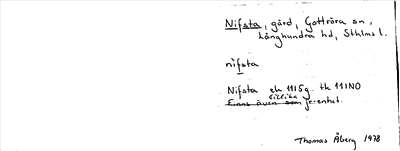 Nifsta, gård, Gottröra sn,
Långhundra hd, Sthlms l.
nifsta
Nifsta ek 11I5g tk 11INO
Finns även som je-enhet.
Thomas Åberg 1978